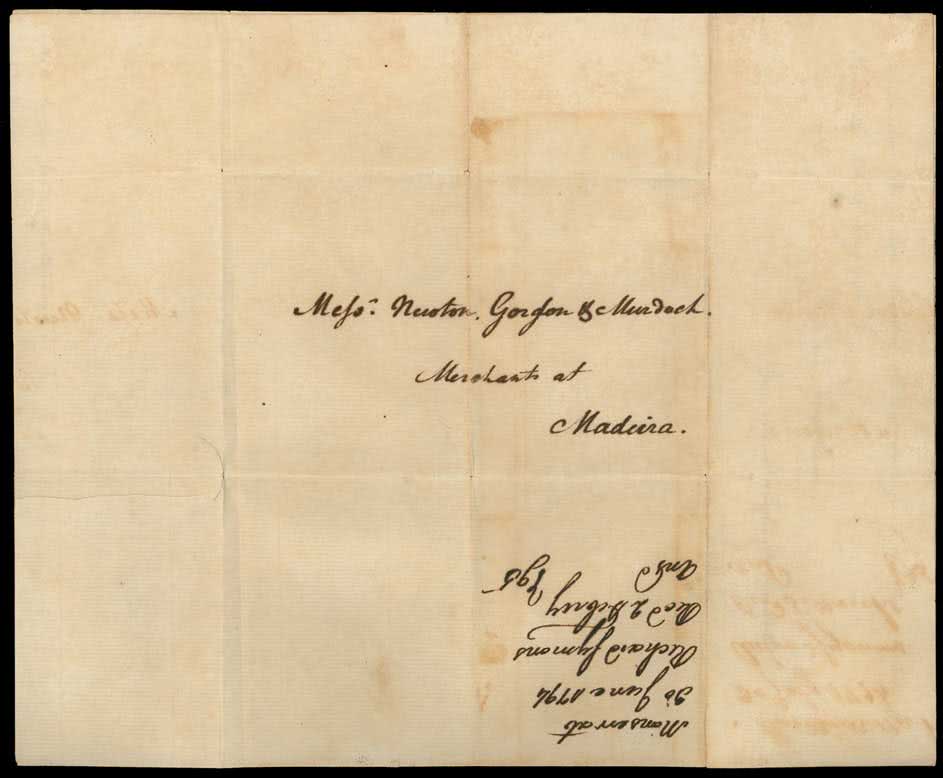 Messrs. Newton, Gordon & Murdoch.
Merchants at
Madeira.
Monserrat
30 June 1794
Richard Symons
Recd 2 Febry 795
Ansd